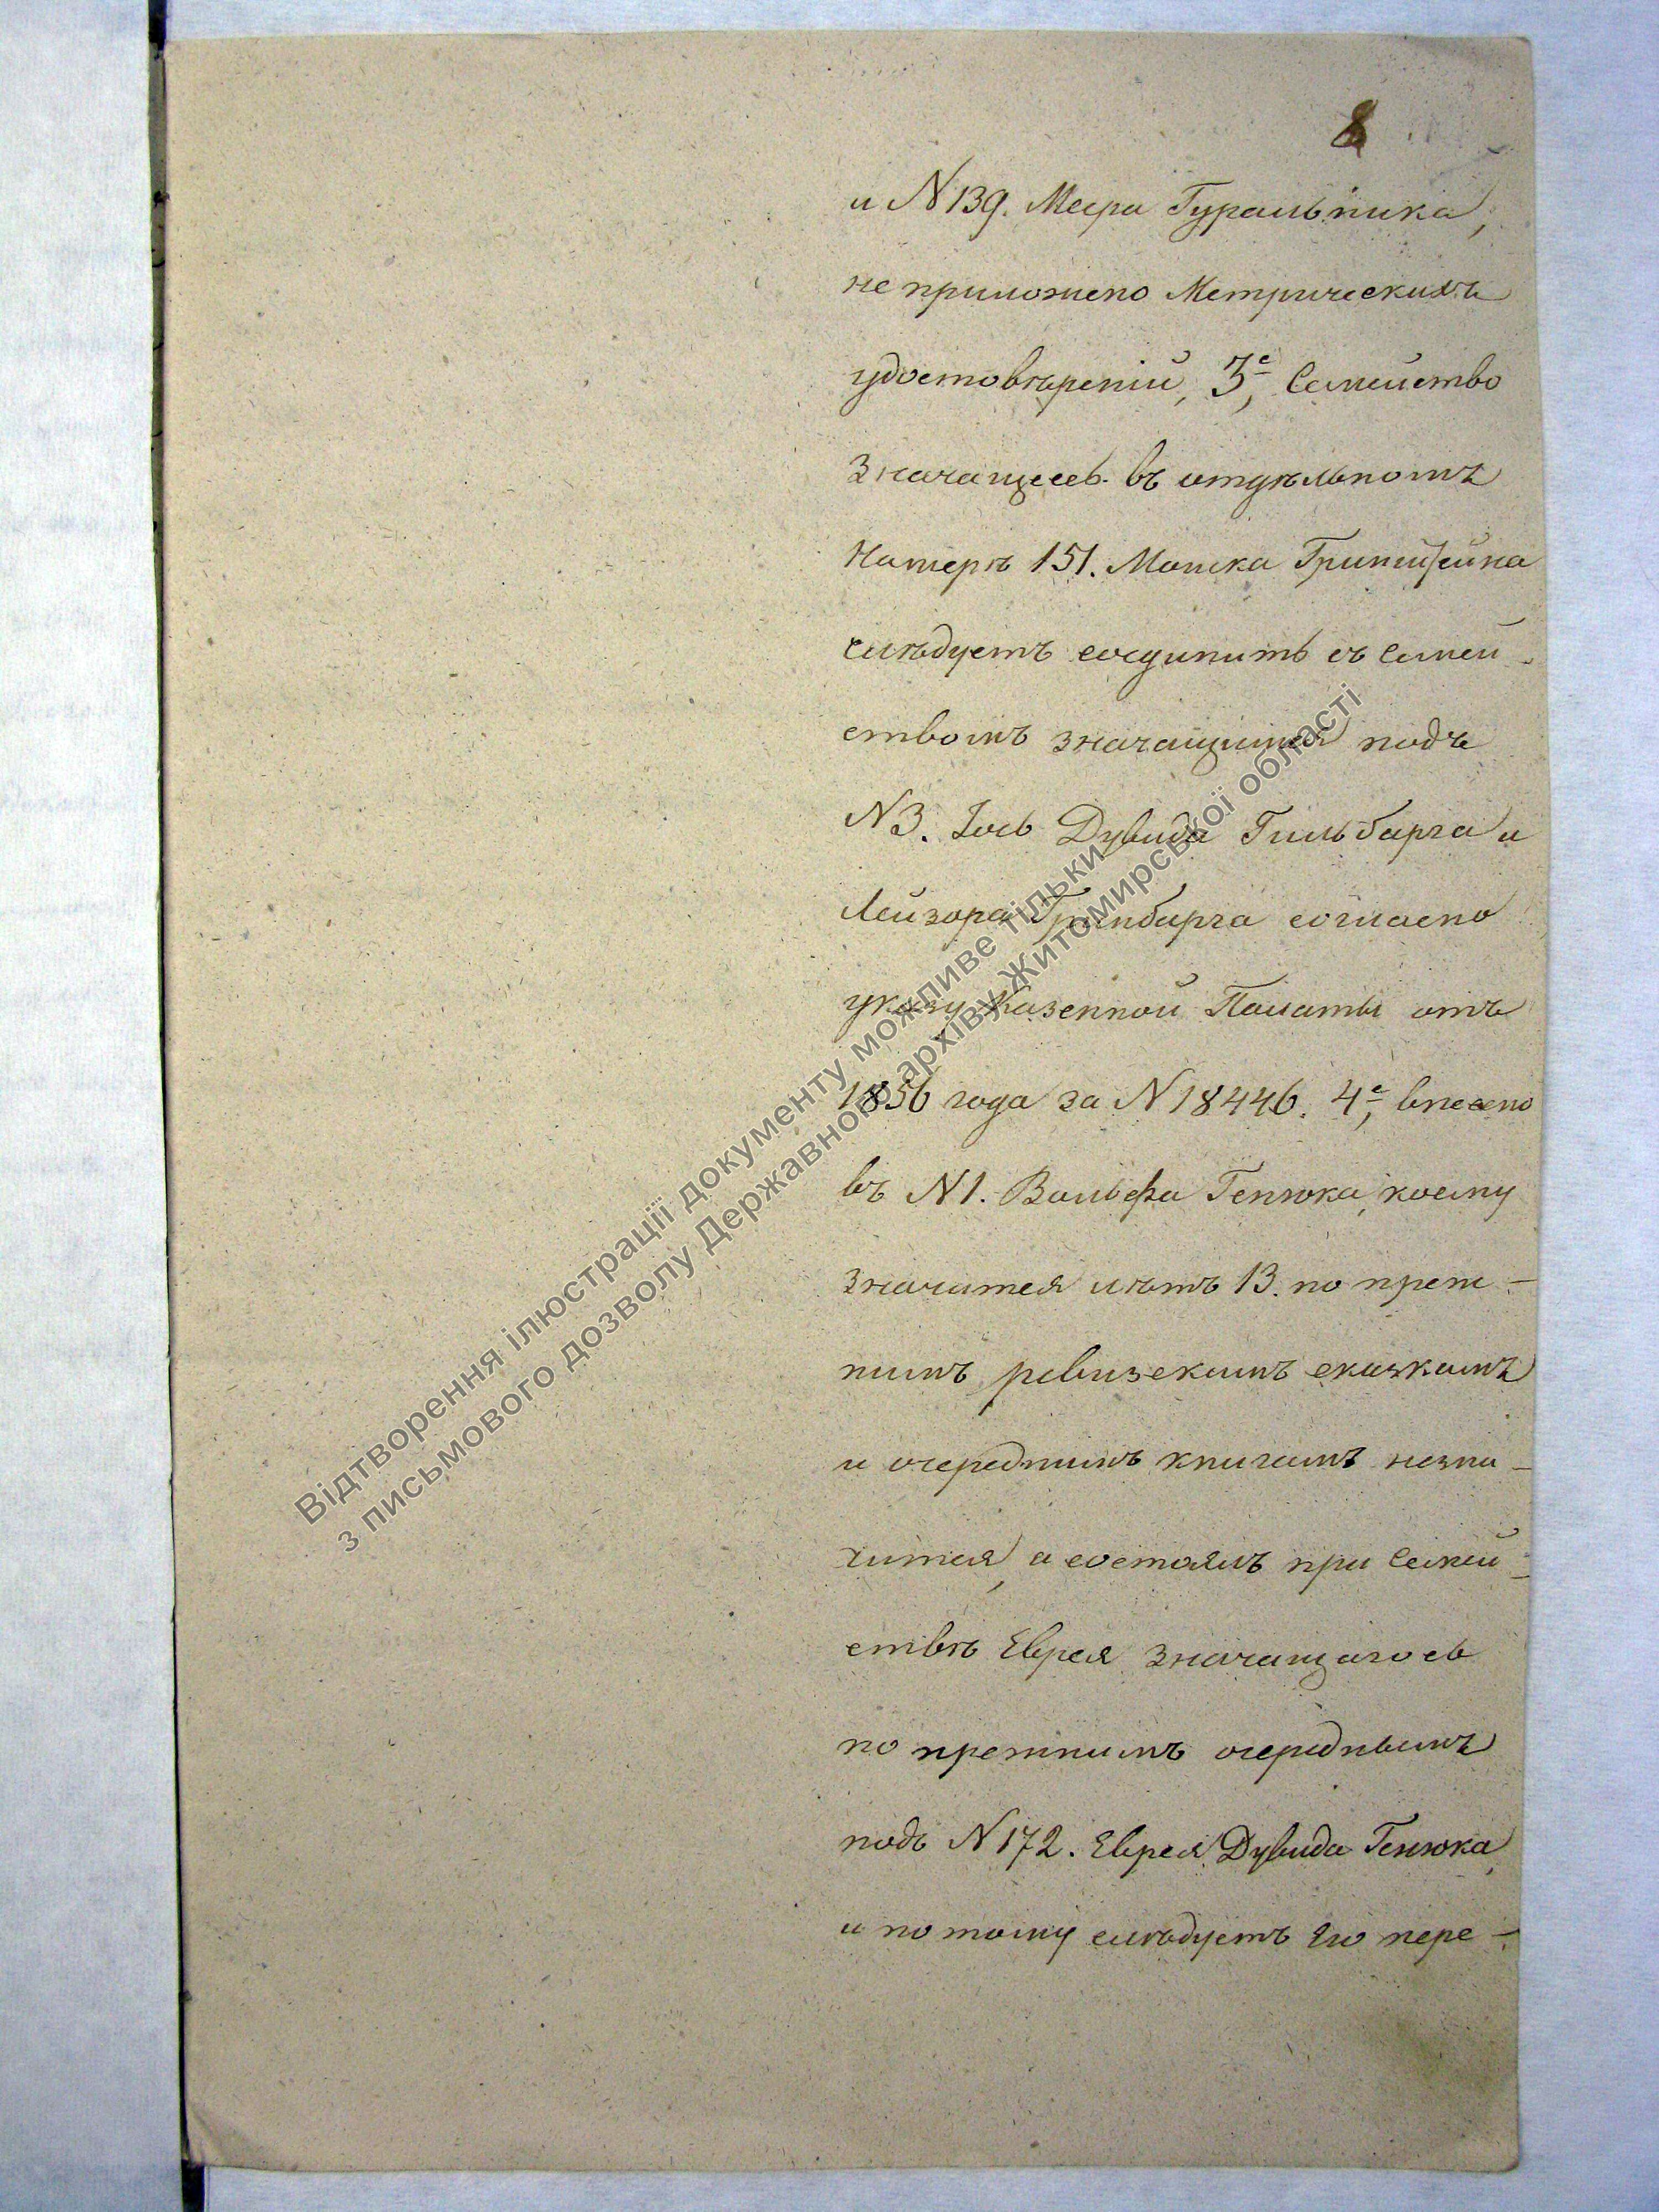 8
и N 139. Меера Гуральника,
не приложено Метрическихъ
удостовѣреній, 3е, Семейство
значащееся въ отдѣльномъ
Номерѣ 151. Мошка
слѣдуетъ соединить съ Семей-
ствомъ значащимся подъ
N 3. Іось Дувида Гильбарга и
Лейзора Гринбарга согласно
указу Казенной Палаты отъ
1856 года за N 18446. 4е, внесено
въ N 1. Вольфа Генюка, коему
значится лѣтъ 13. по преж-
нимъ ревизскимъ сказкамъ
и очереднимъ книгамъ незна-
чится, а состоялъ при Семей-
ствѣ Еврея значащагось
по прежнимъ очереднымъ
подъ N 172. Еврея Дувида Генюка,
и по тому слѣдуетъ Его пере-
Відтворення ілюстрації документу можливе тільки
з письмового дозволу Державного архіву Житомирської області